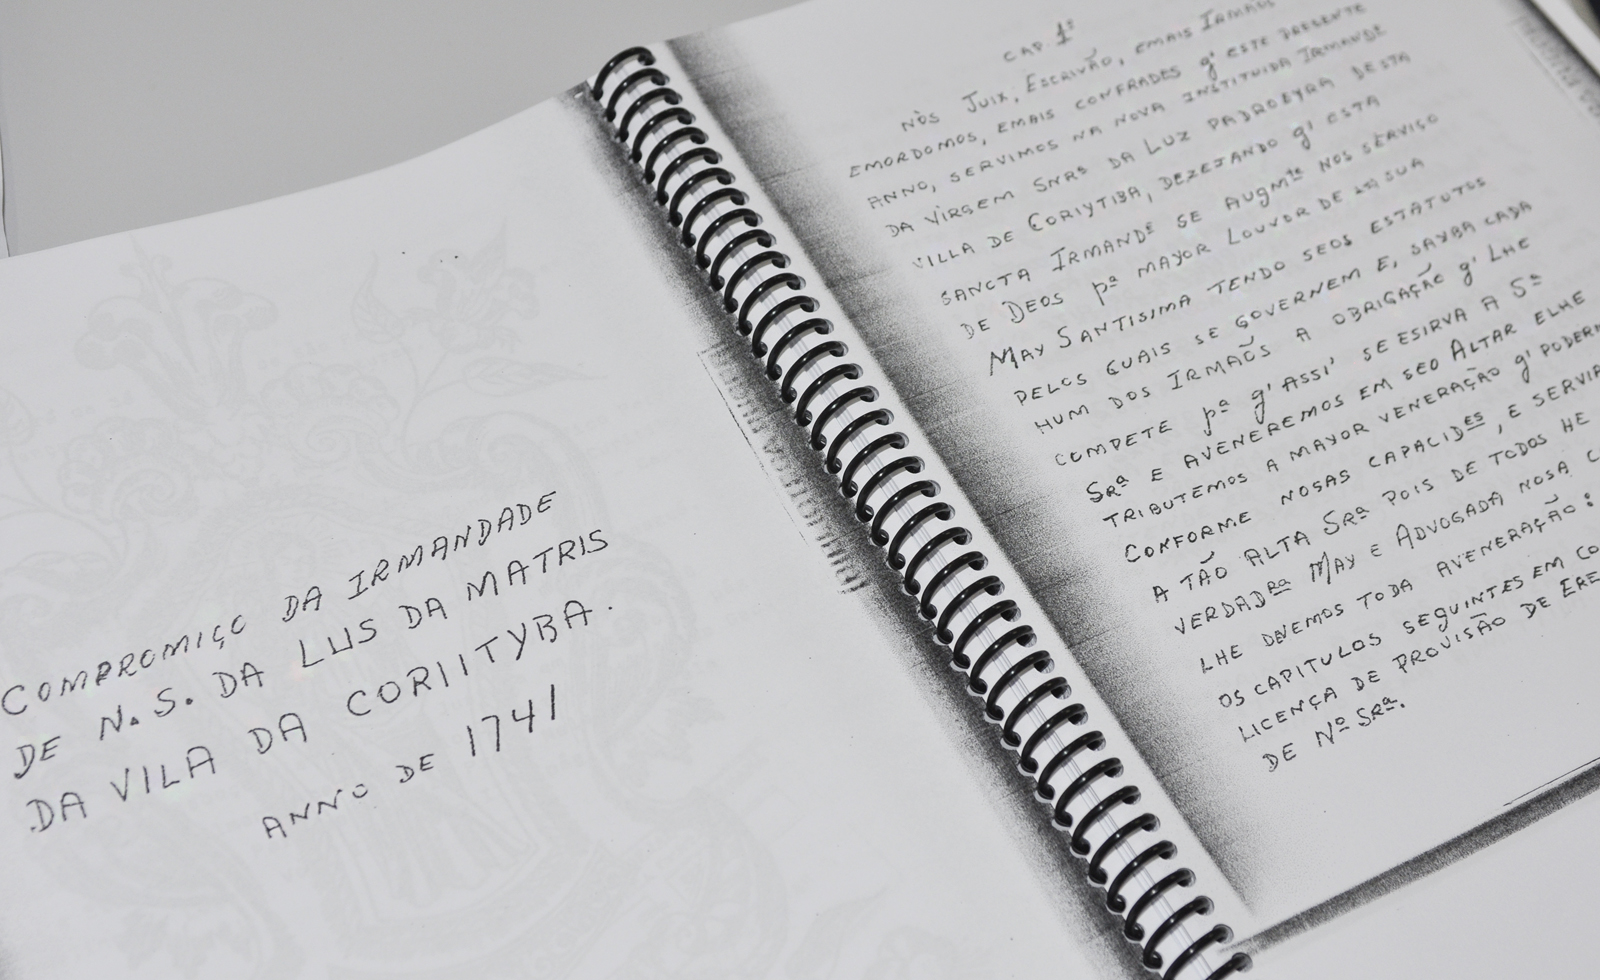 COMPROMIÇO DA IRMANDADE
DE N. S. DA LUS DA MATRIS
DA VILA DA CORIITYBA.
ANNO DE 1741
CAP. 1º
NÒS JUIX, ESCRIVÃO, EMAIS IRMAÕS
EMORDOMOS, EMAIS CONFRADES q' ESTE PREZENTE
ANNO, SERVIMOS NA NOVA INSTITUIDA IRMANDE
DA VIRGEM SNRª DA LUZ PADROEYRA DESTA
VILLA DE CORIYTIBA, DEZEJANDO q' ESTA
SANCTA IRMANDE SE AUGMte NOS SERVIÇO
DE DEOS pª MAYOR LOUVOR DE SUA
MAY SANTISIMA TENDO SEOS ESTATUTOS
PELOS GUAIS SE GOVERNEM E, SAYBA CADA
HUM DOS IRMAÕS A OBRIGAÇÃO q' LHE
COMPETE pª q' ASSI' SE ESIRVA A Sª
SRª E AVENEREMOS EM SEO ALTAR ELHE
TRIBUTEMOS A MAYOR VENERAÇÃO q'
CONFORME NOSAS CAPACIDES, E
A TÃO ALTA SRª POIS DE TODOS HE
VERDADRª MAY E ADVOGADA NOSA
LHE DEVEMOS TODA AVENERAÇÃO:
OS CAPITULOS SEGUINTES EM
LICENÇA DE PROVISÃO DE
DE Nº SRª.